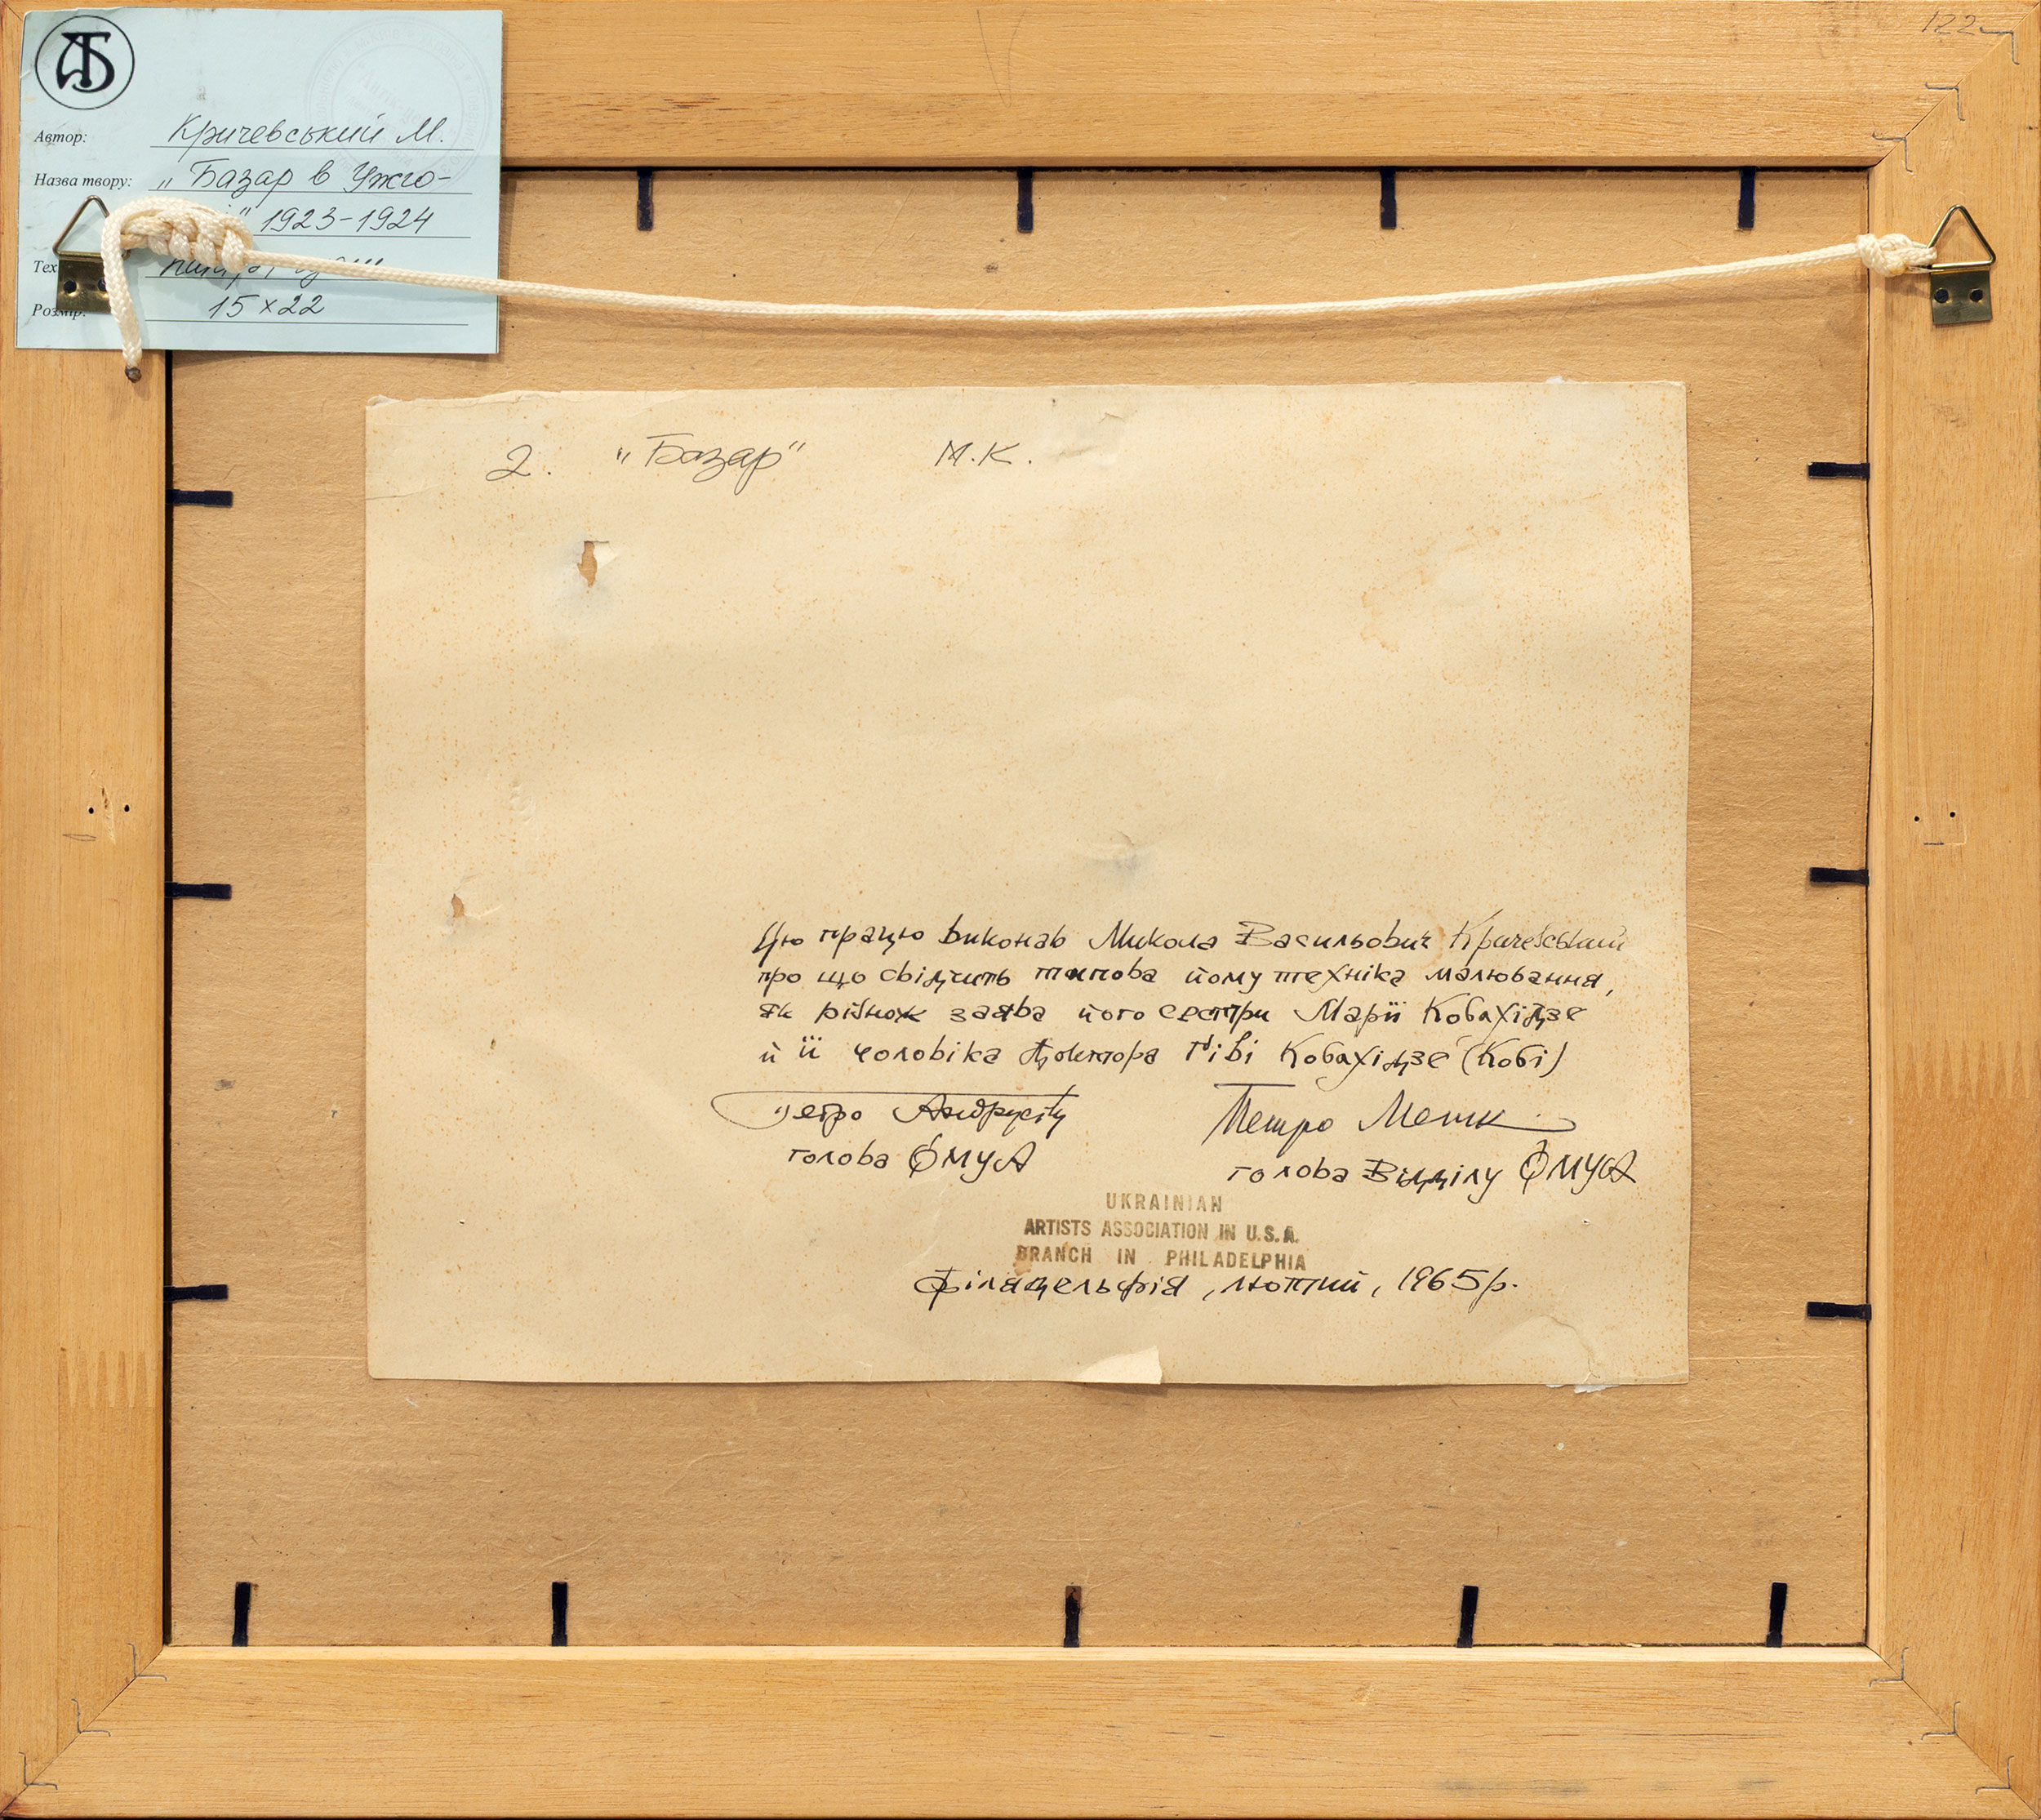 АБ
Автор: Кричевський М.
Назва твору: „Базар в Ужго-
" 1923-1924
папір, гуаш
Розмір: 15х22
122
2. „Базар" М.К.
Цю працю виконав Микола Васильович Кричевський
про що свідчить типова йому техніка малювання,
як рівнож заява його сестри Марії Кобахідзе
й її чоловіка Доктора Ґіві Кобахідзе (Кобі)
Петро Андрусів Петро Мегик
голова ОМУА голова Відділу ОМУА
UKRAINIAN
ARTISTS ASSOCIATION IN U.S.A.
BRANCH IN PHILADELPHIA
Філядельфія, лютий, 1965 р.